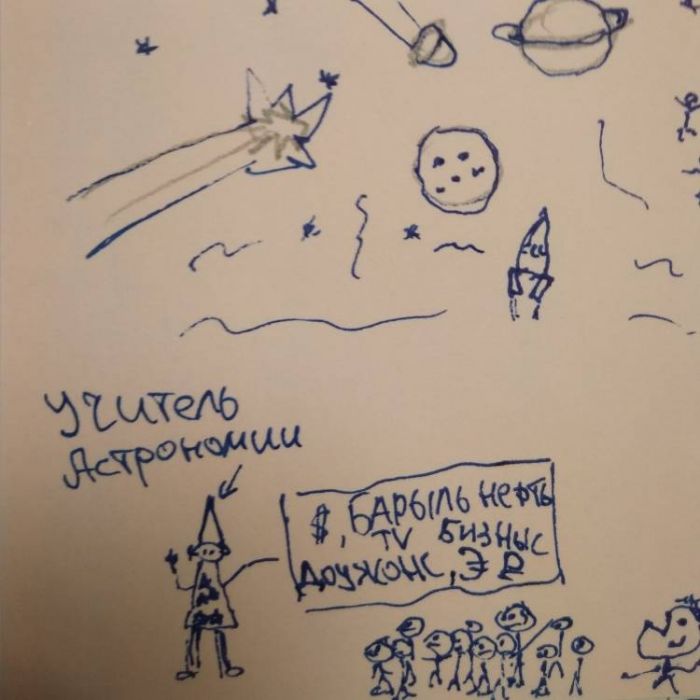 Учитель
Астрономии
$, БАРЫЛЬ НЕФТЬ
TV БИЗНЫС
ДОУЖОНС, Э ₽